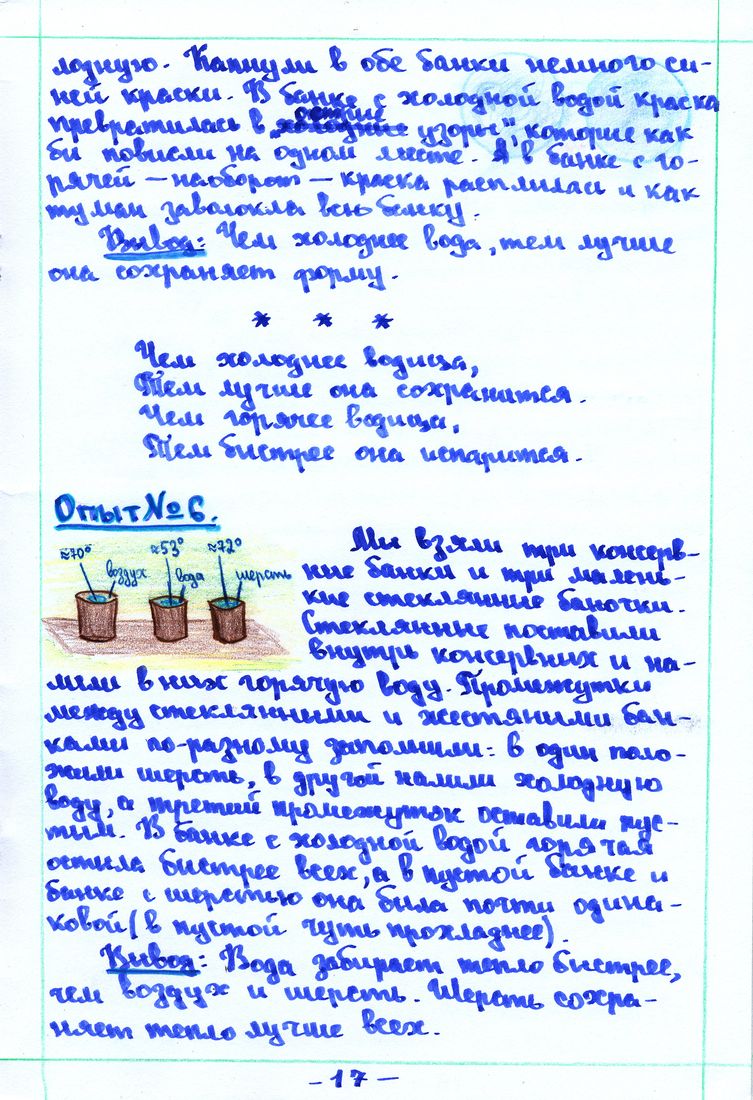 лодную. Капнули в обе банки немного си-
ней краски. В банке с холодной водой краска
превратилась в „острые узоры", которые как
бы повисли на одном месте. А в банке с го-
рячей – наоборот – краска расплылась и как
туман заволокла всю банку.
Вывод: Чем холоднее вода, тем лучше
она сохраняет форму.
* * *
Чем холоднее водица,
Тем лучше она сохранится.
Чем горячее водица,
Тем быстрее она испарится.
Опыт № 6.
≈70° ≈53° ≈72°
воздух вода шерсть
Мы взяли три консерв-
ные банки и три малень-
кие стеклянные баночки.
Стеклянные поставили
внутрь консервных и на-
лили в них горячую воду. Промежутки
между стеклянными и жестяными бан-
ками по-разному заполнили: в один поло-
жили шерсть, в другой налили холодную
воду, а третий промежуток оставили пус-
тым. В банке с холодной водой горячая
остыла быстрее всех, а в пустой банке и
банке с шерстью она была почти одина-
ковой (в пустой чуть прохладнее).
Вывод: Вода забирает тепло быстрее,
чем воздух и шерсть. Шерсть сохра-
няет тепло лучше всех.
- 17 -